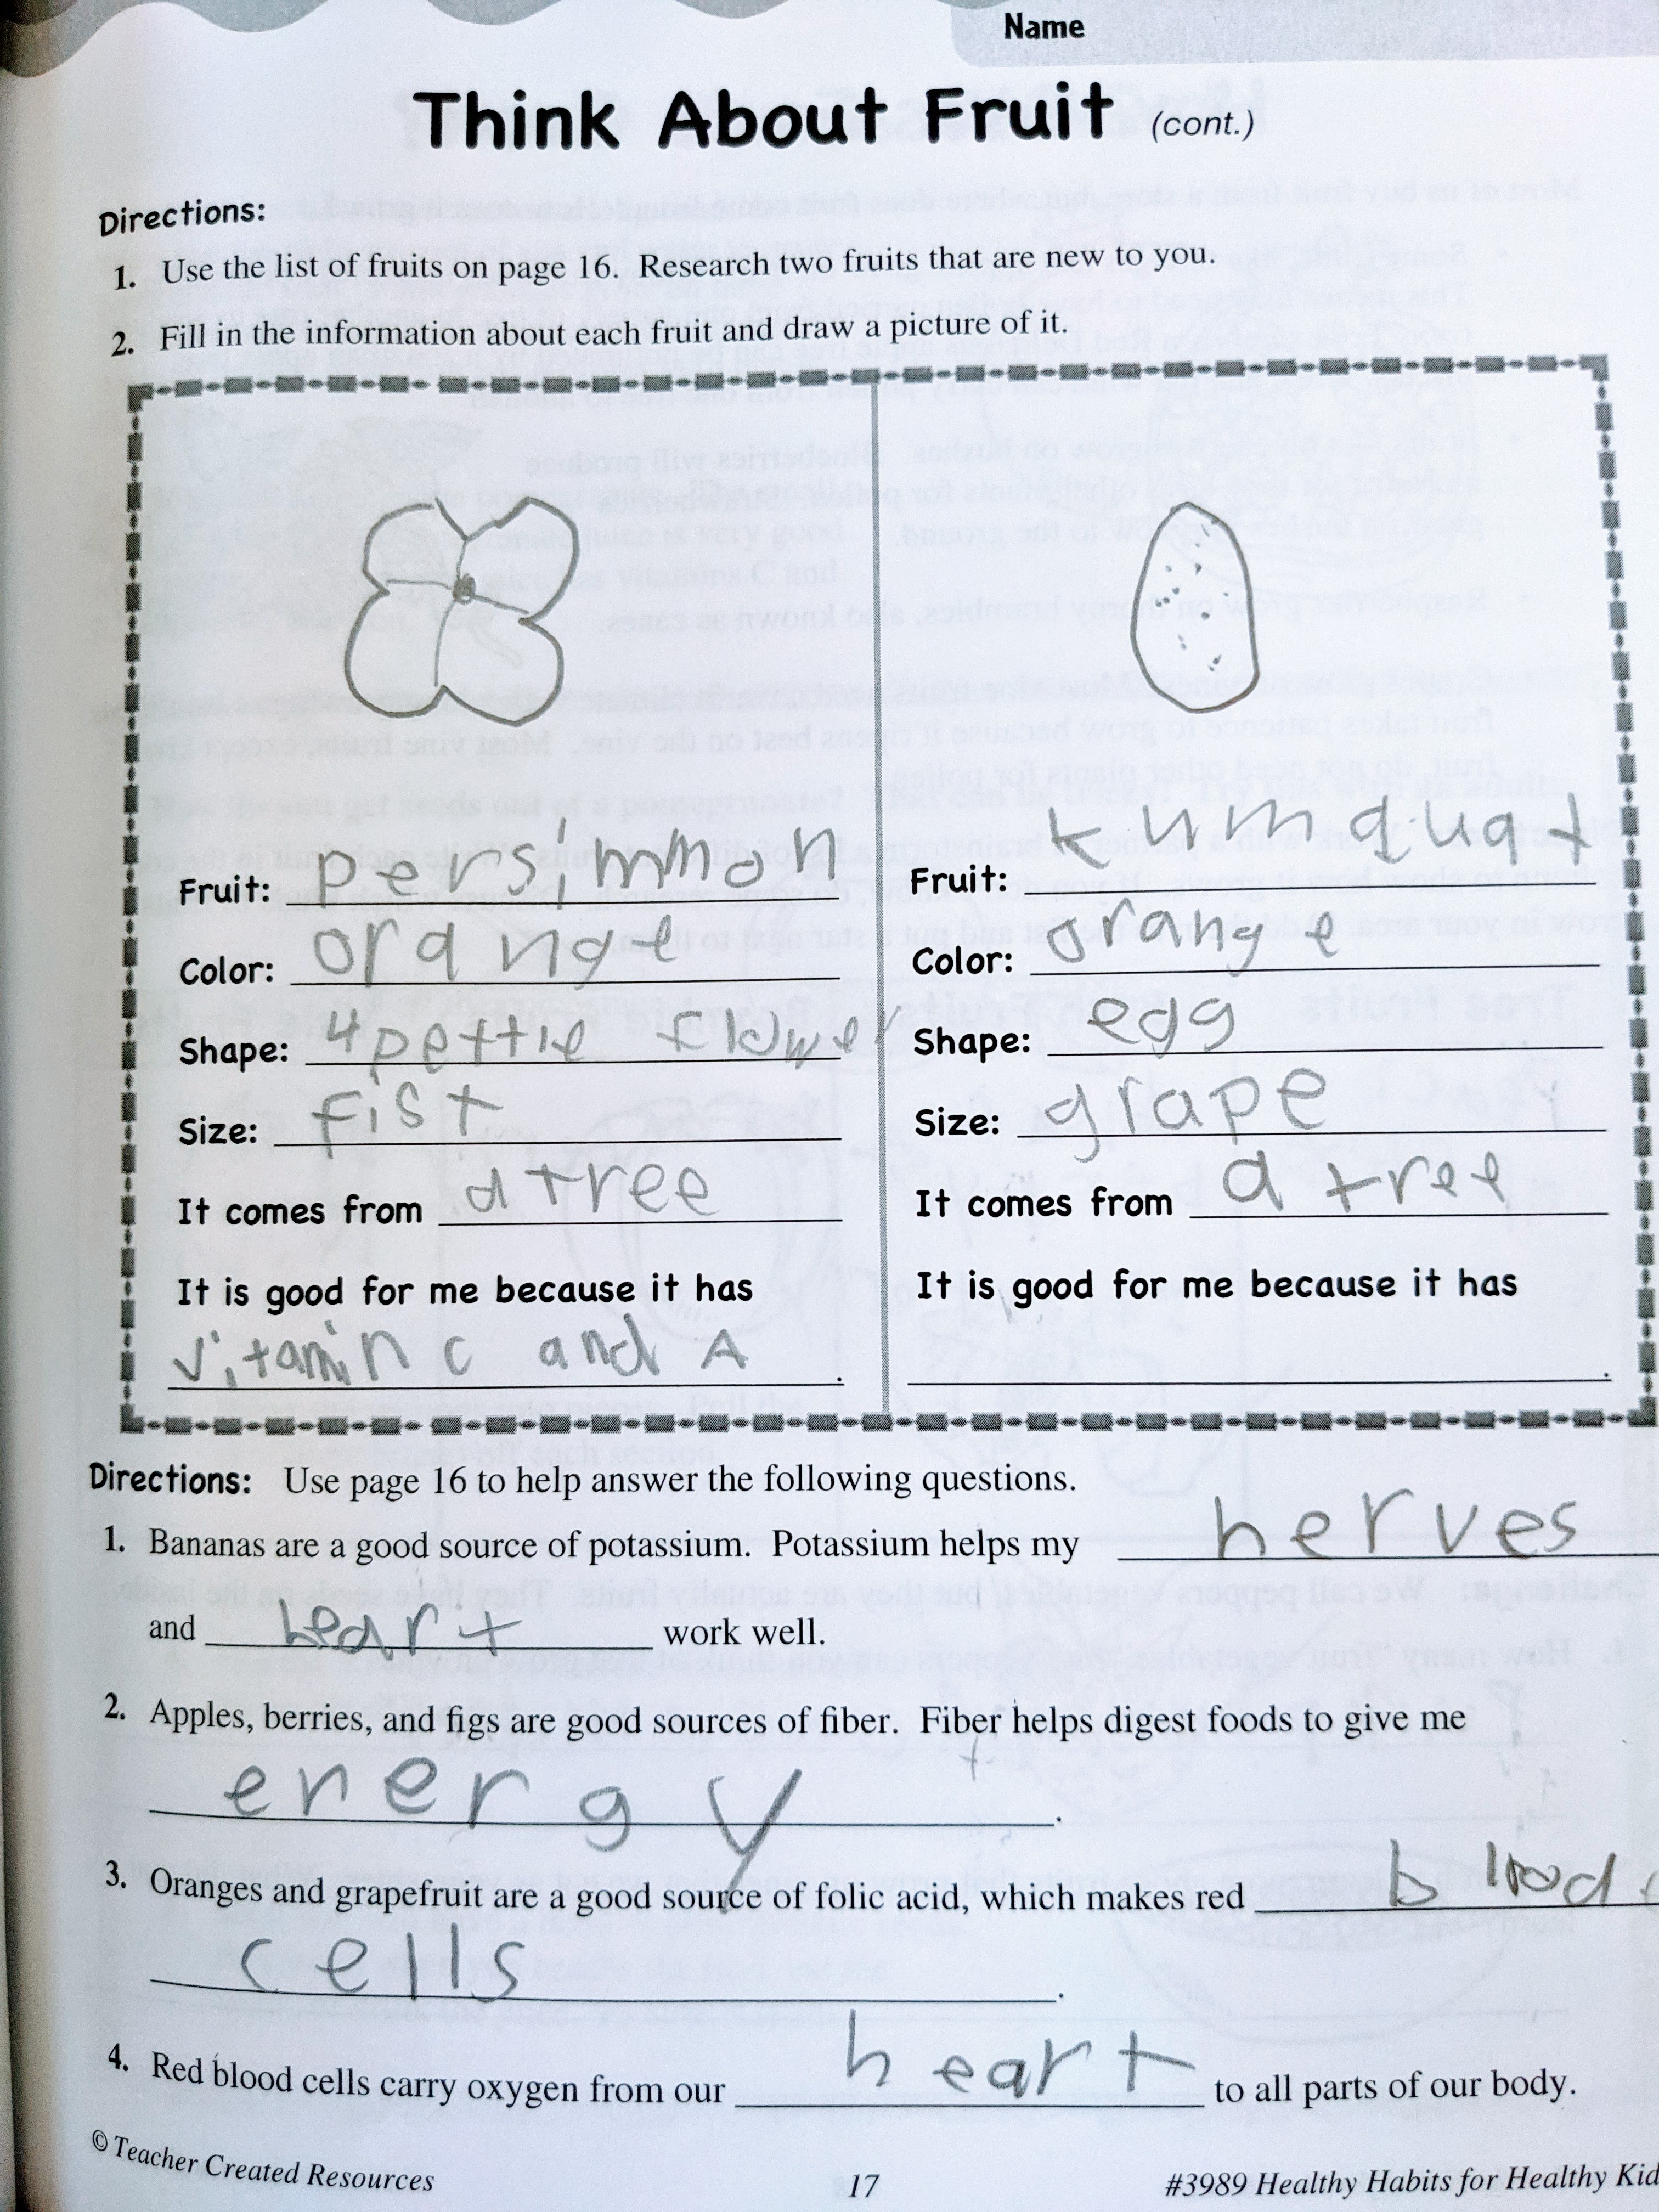 Name
Think About Fruit (cont.)
Directions:
1. Use the list of fruits on page 16. Research two fruits that are new to you.
2. Fill in the information about each fruit and draw a picture of it.
Fruit: persimmon
Color: orange
Shape: 4 pettle flower
Size: fist
It comes from a tree
It is good for me because it has
vitamin c and A.
Fruit: kumquat
Color: orange
Shape: egg
Size: grape
It comes from a tree
It is good for me because it has
.
Directions: Use page 16 to help answer the following questions.
1. Bananas are a good source of potassium. Potassium helps my nerves
and heart work well.
2. Apples, berries, and figs are good sources of fiber. Fiber helps digest foods to give me
energy.
3. Oranges and grapefruit are a good source of folic acid, which makes red blood
cells.
4. Red blood cells carry oxygen from our heart to all parts of our body.
© Teacher Created Resources 17 #3989 Healthy Habits for Healthy Kid